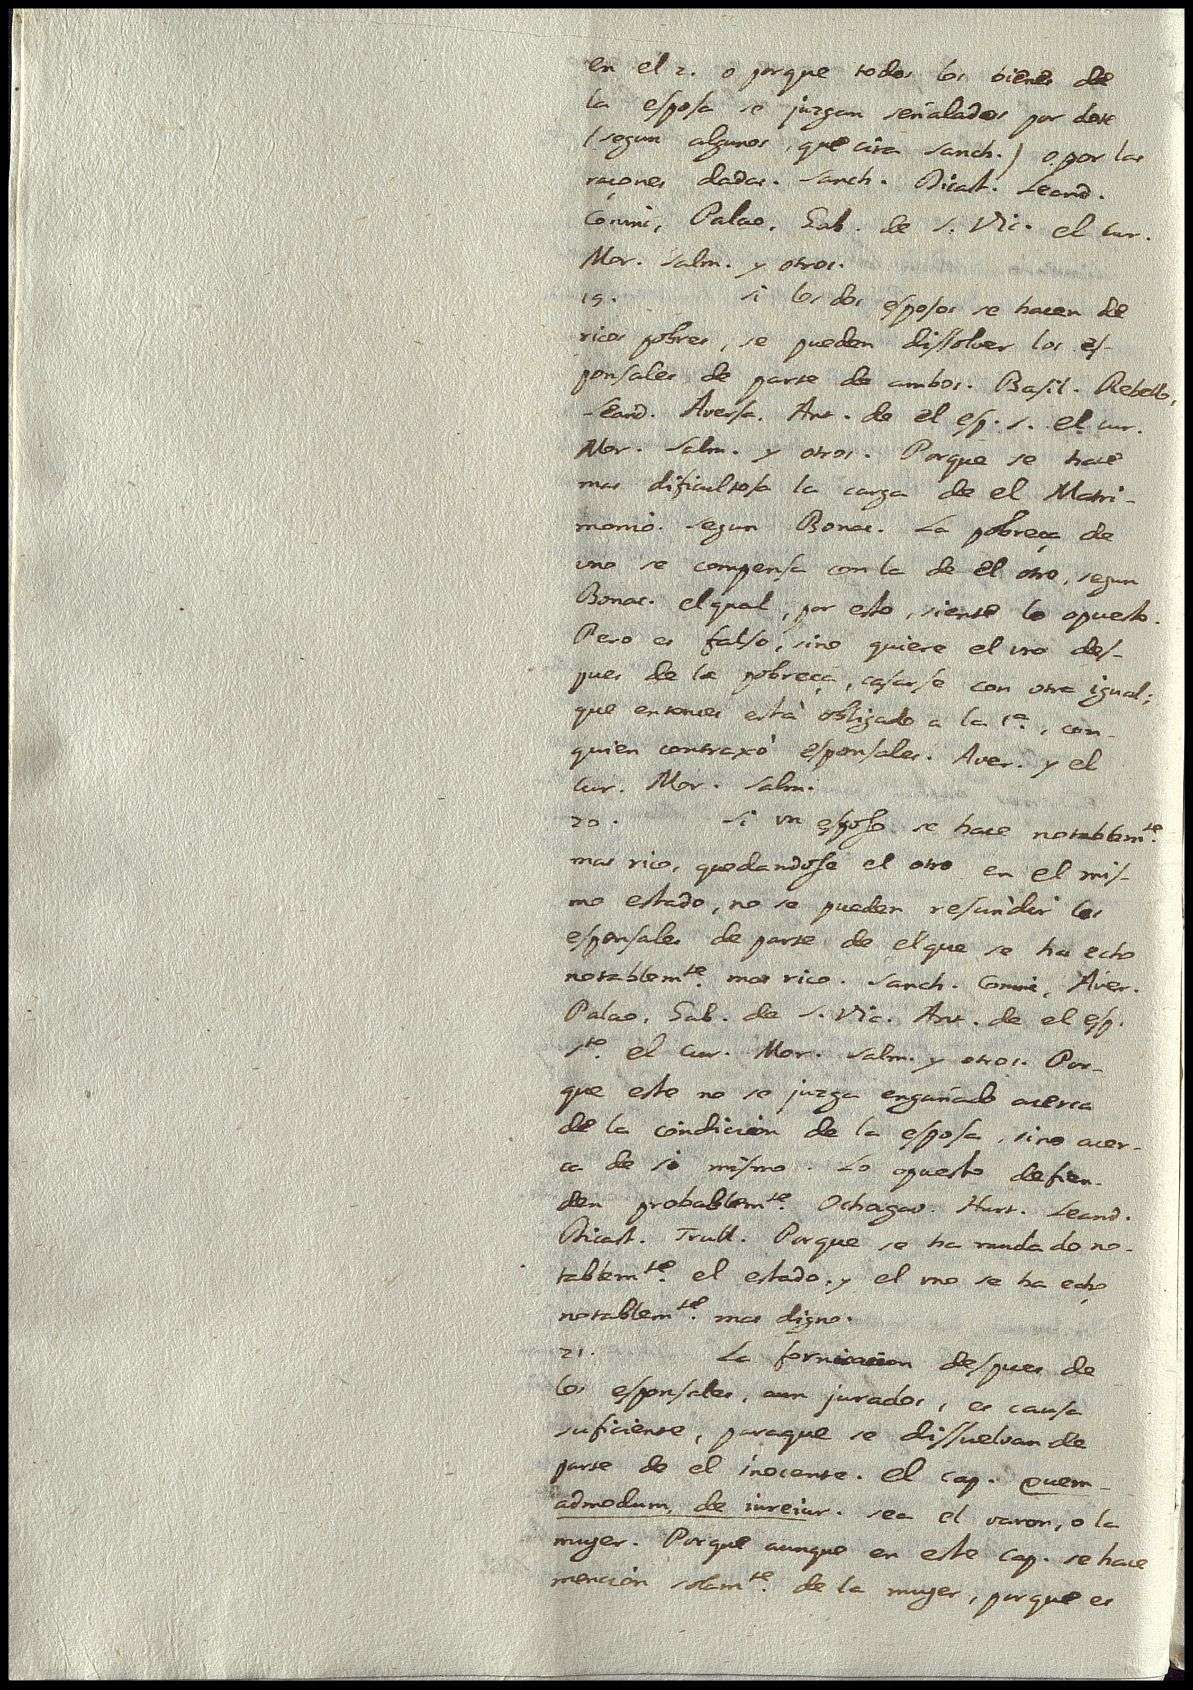 en el 2. o porque todos los bienes de
la esposa se juzgan señalados por dote
(segun algunos, que cita Sanch.) o por las
raçones dadas. Sanch. Dicast. Leand.
Coninc, Palao, Gab. de S. Vic. el Cur.
Mor. Salm. y otros.
19. Si los dos esposos se hacen de
ricos pobres, se pueden dissolver los es-
ponsales de parte de ambos. Basil. Rebello,
Leand. Aversa. Ant. de el esp. s. el Cur.
Mor. Salm. y otros. Porque se hace
mas dificultosa la carga de el Matri-
monio. Segun Bonac. La pobreça de
uno se compensa con la de el otro, segun
Bonac. el qual, por esto, siente lo opuesto.
Pero es falso, sino quiere el uno des-
pues de la pobreça, casarse con otra igual;
que entonces está obligado a la 1ª., con-
quien contraxo esponsales. Aver. y el
Cur. Mor. Salm.
20. Si un esposo se hace notablemte.
mas rico, quedandose el otro en el mis-
mo estado, no se pueden resundir los
esponsales de parte de el que se ha echo
notablemte. mas rico. Sanch. Coninc, Aver.
Palao, Gab. de S. Vic. Ant. de el esp.
Sto. el Cur. Mor. Salm. y otros. Por-
que este no se juzga engañado acerca
de la condicion de la esposa, sino acer-
ca de si mismo. Lo opuesto defien-
den probablemte. Ochagav. Hurt. Leand.
Dicast. Trull. Porque se ha mudado no-
tablemte. el estado, y el uno se ha echo
notablemte. mas digno.
21. La fornicacion despues de
los esponsales, aun jurados, es causa
suficiente, paraque se dissuelvan de
parte de el inocente. El cap. quem-
admodum, de iureiur. sea el varon, o la
muger. Porque aunque en este Cap. se hace
mencion solamte. de la muger, porque es